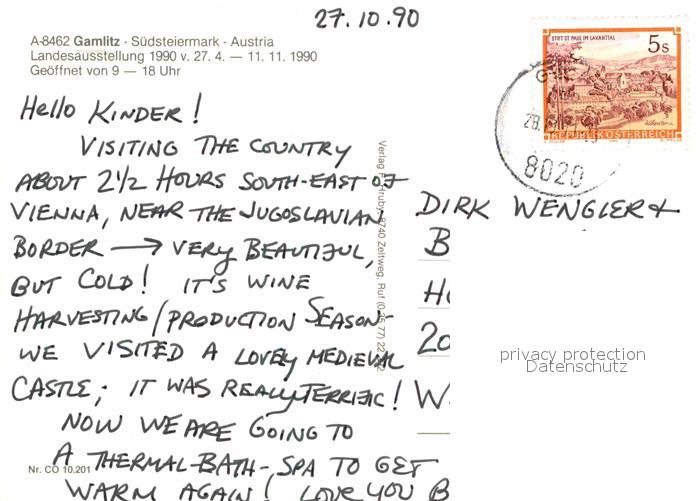 27.10.90
A-8462 Gamlitz - Südsteiermark - Austria
Landesausstellung 1990 v. 27. 4. — 11. 11. 1990
Geöffnet von 9 — 18 Uhr
STIFT ST. PAUL IM LAVANTTAL
5s
REPUBLIK ÖSTERREICH
8020
Hello KINDER!
VISITING THE COUNTRY
ABOUT 2½ HOURS SOUTH-EAST OF
VIENNA, NEAR THE JUGOSLAVIAN
BORDER → VERY BEAUTIFUL,
BUT COLD! IT'S WINE
HARVESTING/PRODUCTION SEASON-
WE VISITED A LOVELY MEDIEVAL
CASTLE; IT WAS REALLY TERRIFIC!
NOW WE ARE GOING TO
A THERMAL-BATH-SPA TO GET
WARM AGAIN! LOVE YOU B
Nr. CO 10.201
Verlag F. Hruby, 8740 Zeltweg, Ruf (0 35 77) 22
DIRK WENGLER+
B
Ho
20
W.
privacy protection
Datenschutz